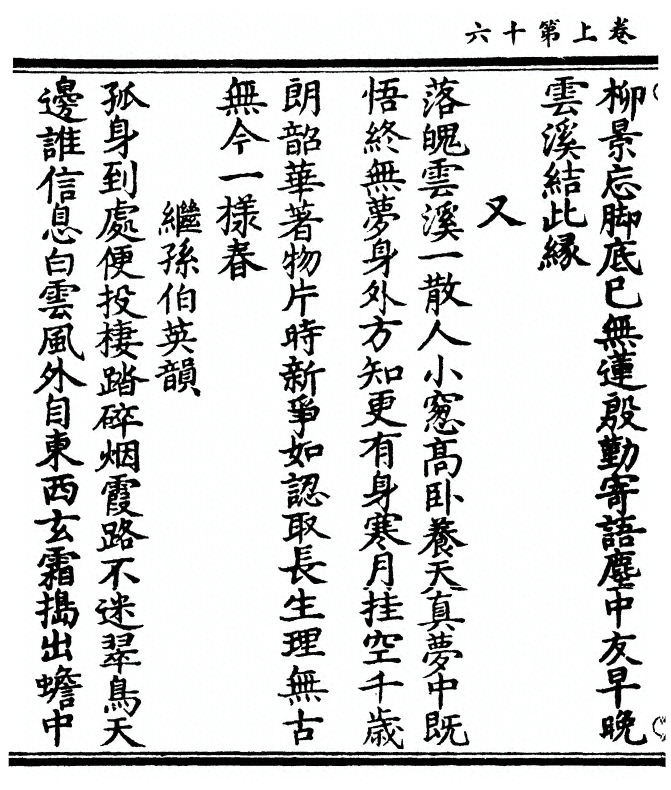 六十第上卷
柳景忘脚底已無蓮殷勤寄語塵中友早晚
雲溪結此緣
又
落魄雲溪一散人小窓高卧養天真夢中既
悟終無夢身外方知更有身寒月挂空千歲
朗韶華著物片時新爭如認取長生理無古
無今一樣春
繼孫伯英韻
孤身到處便投棲踏碎烟霞路不迷翠鳥天
邊誰信息白雲風外自東西玄霜搗出蟾中